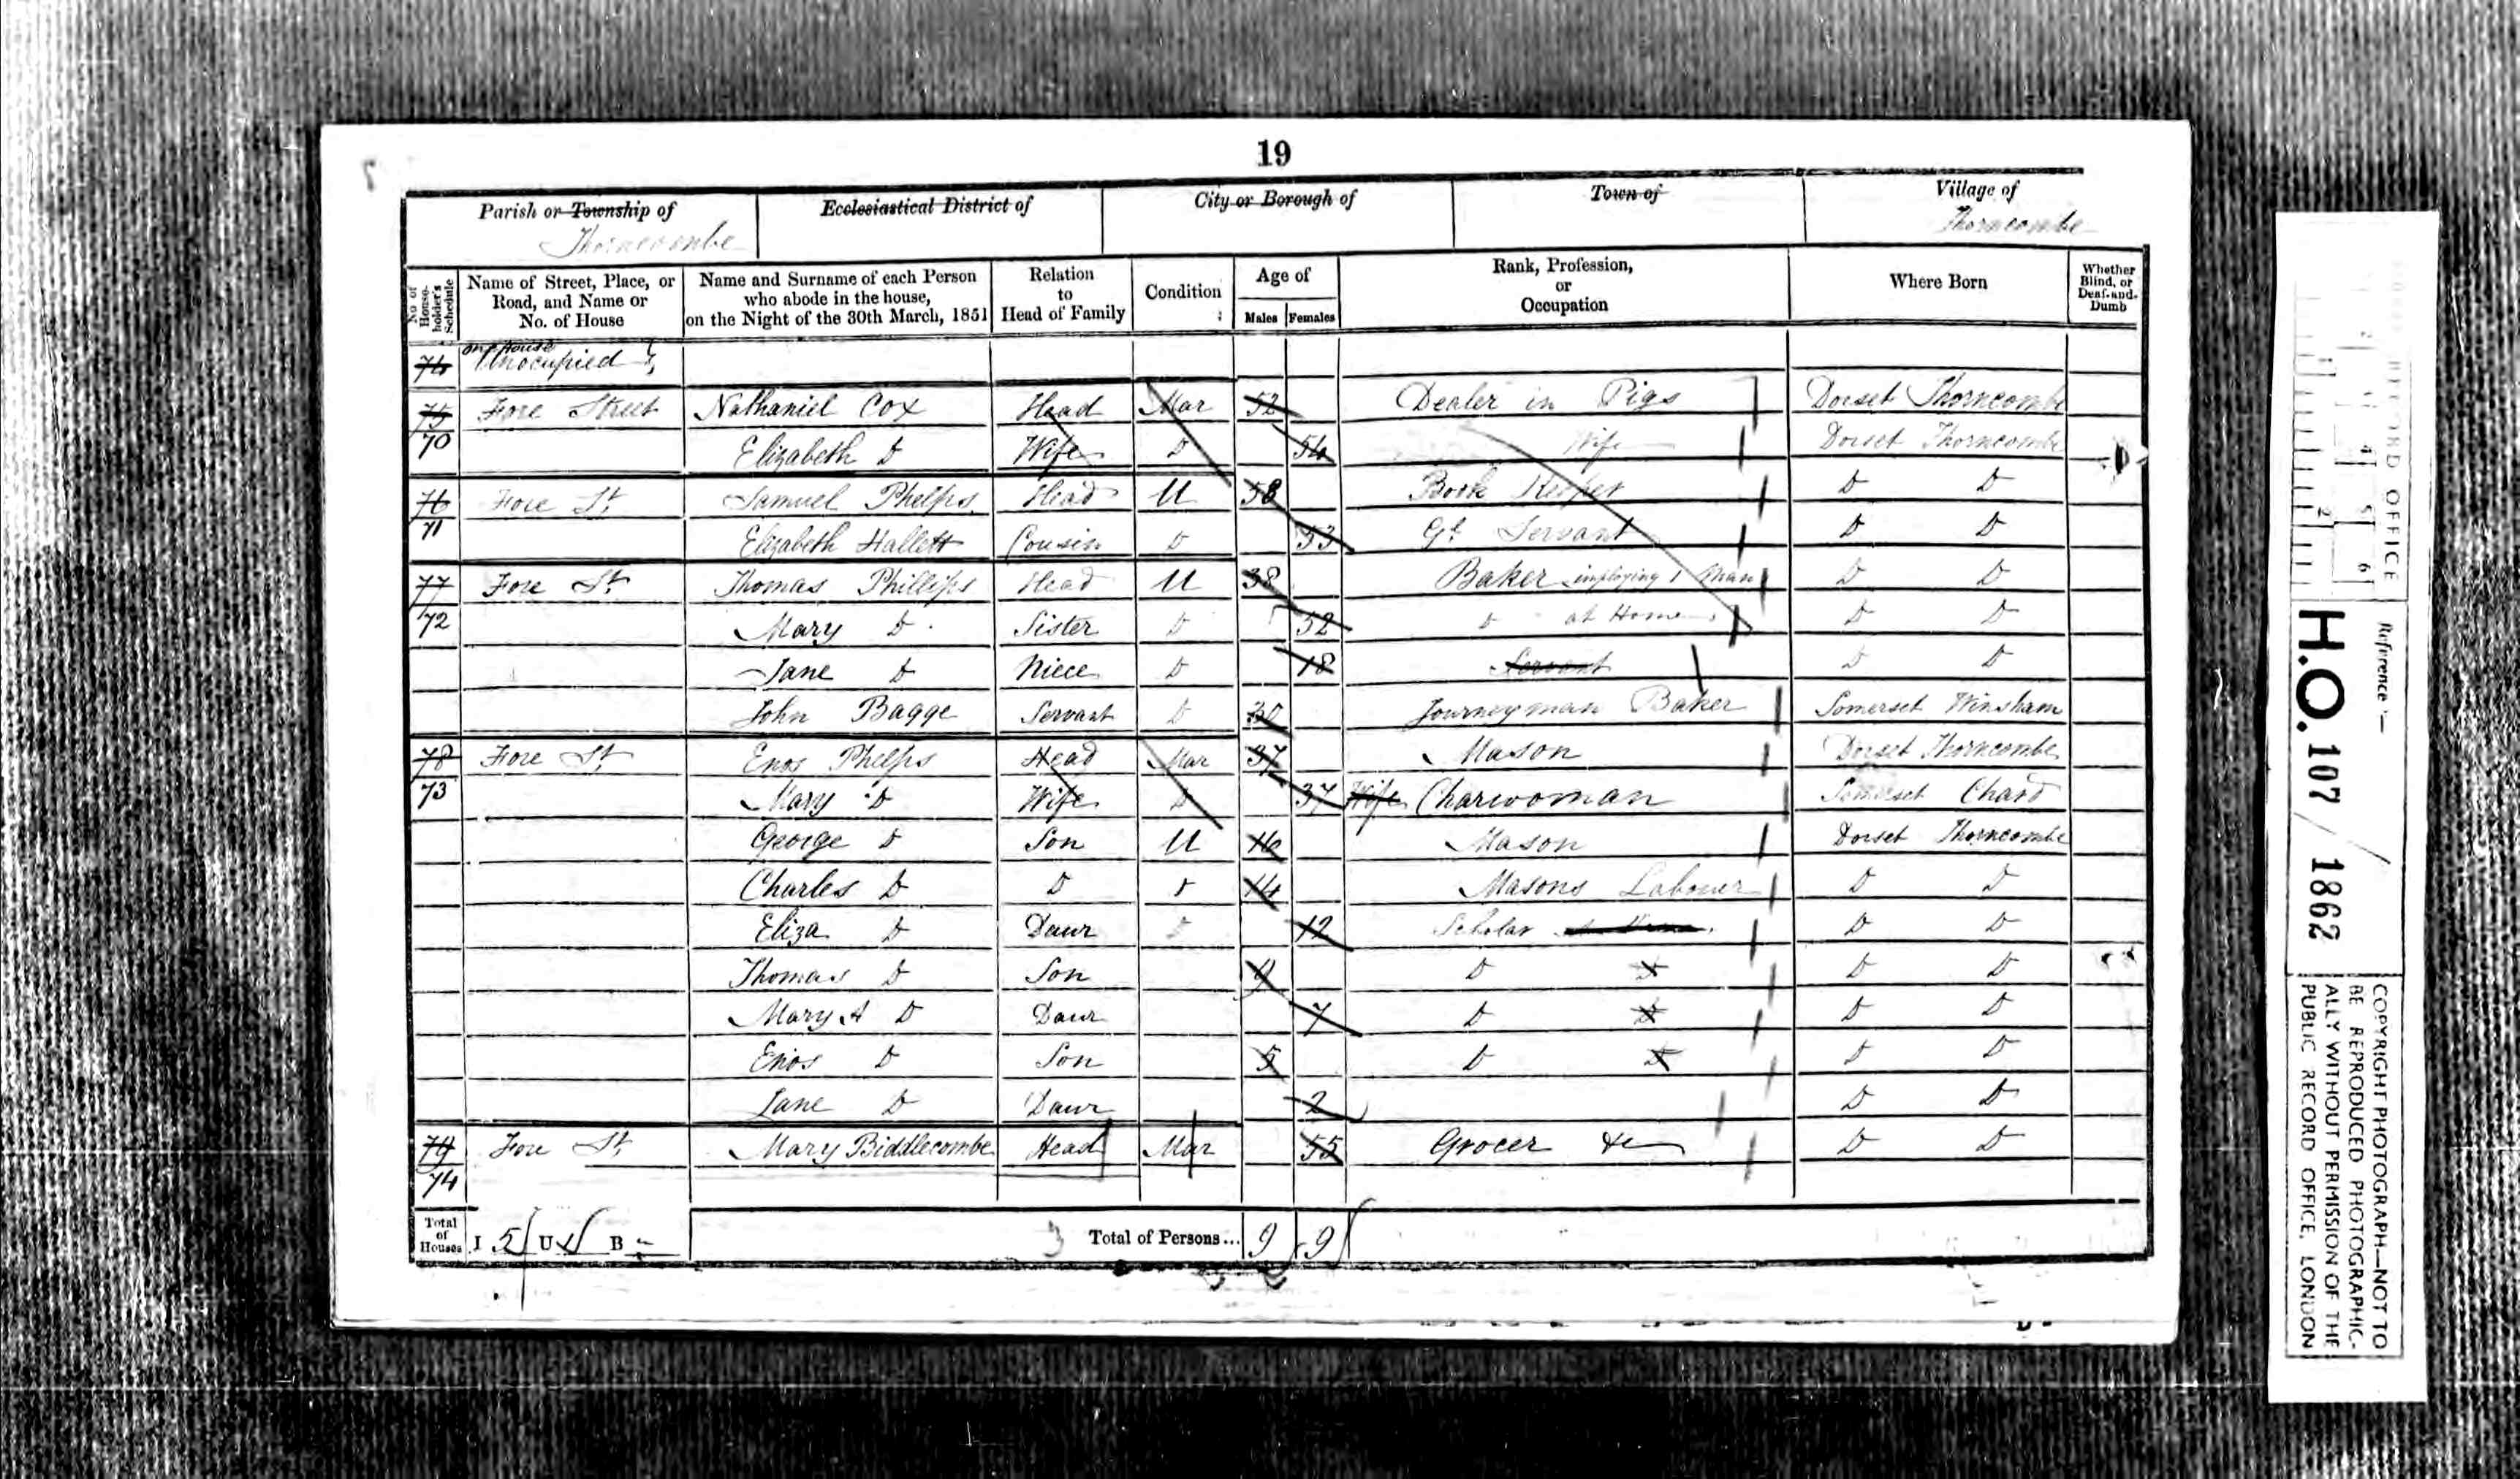 19
Parish or Township of Ecclesiastical District of City or Borough of Town of Village of
Thorncombe Thorncombe
No. of House-holder's Schedule Name of Street, Place, or Road, and Name or No. of House Name and Surname of each Person who abode in the house, on the Night of the 30th March, 1851 Relation to Head of Family Condition Age of Males Females Rank, Profession, or Occupation Where Born Whether Blind, or Deaf-and-Dumb
74 one House Unocupied
75 Fore Street Nathaniel Cox Head Mar 52 Dealer in Pigs Dorset Thorncombe
70 Elizabeth D Wife D 54 Wife Dorset Thorncombe
76 Fore St Samuel Phelps Head U 58 Book Keeper D D
71 Elizabeth Hallett Cousin D 53 Gl Servant D D
77 Fore St Thomas Phillips Head U 38 Baker employing 1 Man D D
72 Mary D Sister D 52 D at Home D D
Jane D Niece D 18 Servant D D
John Bagge Servant D Journeyman Baker Somerset Winsham
78 Fore St Enos Phelps Head Mar 37 Mason Dorset Thorncombe
73 Mary D Wife D 37 Wife Charwoman Somerset Chard
George D Son U 16 Mason Dorset Thorncombe
Charles D D D 14 Masons Labouer D D
Eliza D Daur D 12 Scholar D D
Thomas D Son 9 D D D D
Mary A D Daur 7 D D D D
Enos D Son 5 D D D D
Jane D Daur 2 D D
79 Fore St Mary Biddlecombe Head Mar 55 Grocer &c D D
74
Total of Houses I 5 U 1 B - Total of Persons... 9 9
RECORD OFFICE
Reference :-
H.O. 107 / 1862
COPYRIGHT PHOTOGRAPH—NOT TO
BE REPRODUCED PHOTOGRAPHIC-
ALLY WITHOUT PERMISSION OF THE
PUBLIC RECORD OFFICE, LONDON